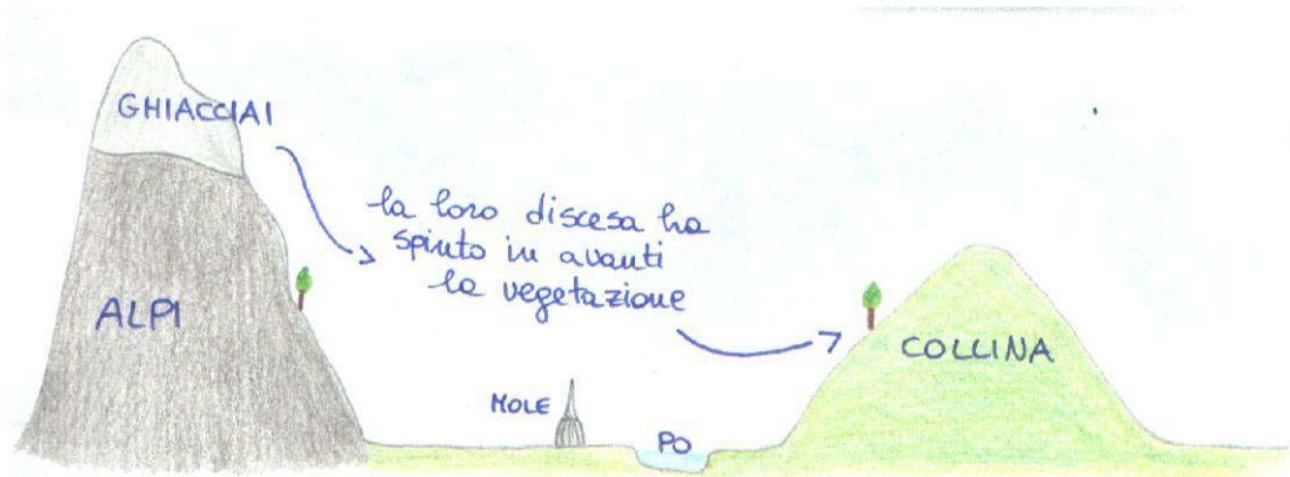 GHIACCIAI
la loro discesa ha
spinto in avanti
la vegetazione
ALPI
COLLINA
MOLE
PO